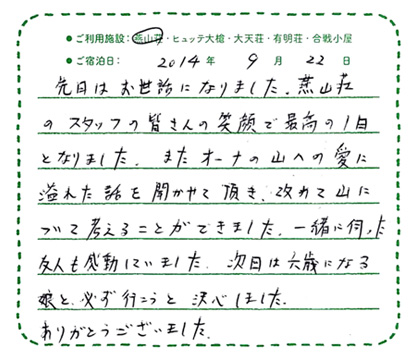 ●ご利用施設：燕山荘・ヒュッテ大槍・大天荘・有明荘・合戦小屋
●ご宿泊日： 2014年 9月 22日
先日はお世話になりました。燕山荘
のスタッフの皆さんの笑顔で最高の1日
となりました。またオーナの山への愛に
溢れた話を聞かせて頂き、改めて山に
ついて考えることができました。一緒に伺った
友人も感動していました。次回は六歳になる
娘と、必ず行こうと決心しました。
ありがとうございました。